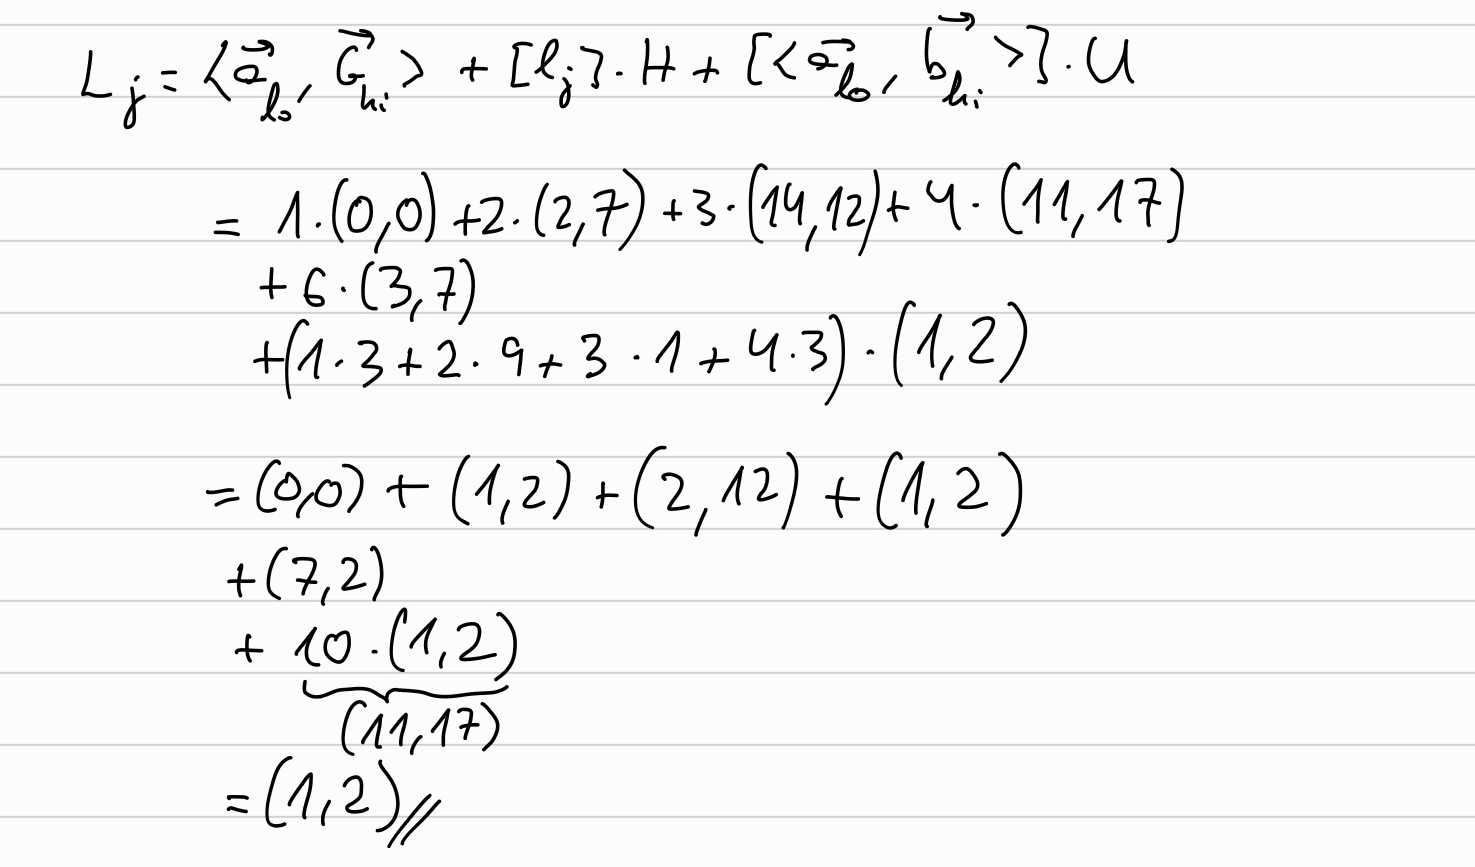 L_j = ⟨a⃗_lo, G⃗_hi⟩ + [l_j] · H + [⟨a⃗_lo, b⃗_hi⟩] · U
= 1·(0,0) + 2·(2,7) + 3·(14,12) + 4·(11,17)
+ 6·(3,7)
+ (1·3 + 2·9 + 3·1 + 4·3) · (1,2)
= (0,0) + (1,2) + (2,12) + (1,2)
+ (7,2)
+ 10·(1,2)
(11,17)
= (1,2)//